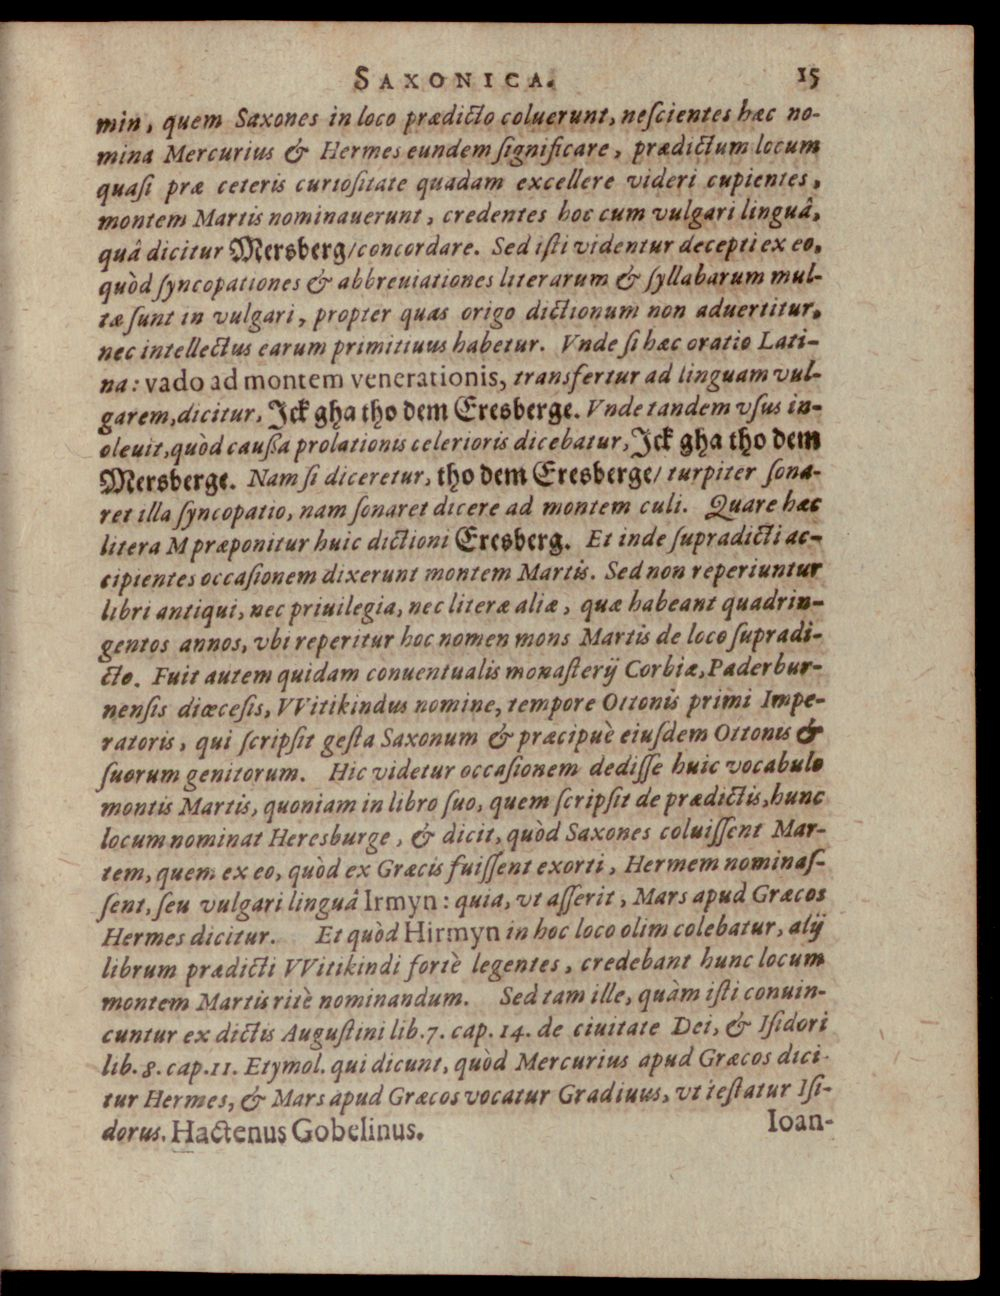 SAXONICA. 15
min, quem Saxones in loco prædicto coluerunt, neſcientes hæc no-
mina Mercurius & Hermes eundem ſignificare, prædictum locum
quaſi præ ceteris curioſitate quadam excellere videri cupientes,
montem Martis nominauerunt, credentes hoc cum vulgari linguâ,
quâ dicitur Mersberg/concordare. Sed iſti videntur decepti ex eo,
quòd ſyncopationes & abbreuiationes literarum & ſyllabarum mul-
tæ ſunt in vulgari, propter quas origo dictionum non aduertitur,
nec intellectus earum primitiuus habetur. Vnde ſi hæc oratio Lati-
na: vado ad montem venerationis, transfertur ad linguam vul-
garem, dicitur, Jck gha tho dem Eresberge. Vnde tandem vſus in-
oleuit, quòd cauſſa prolationis celerioris dicebatur, Jck gha tho dem
Mersberge. Nam ſi diceretur, tho dem Eresberge/ turpiter ſona-
ret illa ſyncopatio, nam ſonaret dicere ad montem culi. Quare hæc
litera M præponitur huic dictioni Eresberg. Et inde ſupradicti ac-
cipientes occaſionem dixerunt montem Martis. Sed non reperiuntur
libri antiqui, nec priuilegia, nec literæ aliæ, quæ habeant quadrin-
gentos annos, vbi reperitur hoc nomen mons Martis de loco ſupradi-
cto. Fuit autem quidam conuentualis monaſterij Corbiæ, Paderbur-
nenſis diœceſis, VVitikindus nomine, tempore Ottonis primi Impe-
ratoris, qui ſcripſit geſta Saxonum & præcipuè eiuſdem Ottonis &
ſuorum genitorum. Hic videtur occaſionem dediſſe huic vocabulo
montis Martis, quoniam in libro ſuo, quem ſcripſit de prædictis, hunc
locum nominat Heresburge, & dicit, quòd Saxones coluiſſent Mar-
tem, quem ex eo, quòd ex Græcis fuiſſent exorti, Hermem nominaſ-
ſent, ſeu vulgari linguâ Irmyn: quia, vt aſſerit, Mars apud Græcos
Hermes dicitur. Et quòd Hirmyn in hoc loco olim colebatur, alij
librum prædicti VVitikindi fortè legentes, credebant hunc locum
montem Martis ritè nominandum. Sed tam ille, quàm iſti conuin-
cuntur ex dictis Auguſtini lib. 7. cap. 14. de ciuitate Dei, & Iſidori
lib. 8. cap. 11. Etymol. qui dicunt, quòd Mercurius apud Græcos dici-
tur Hermes, & Mars apud Græcos vocatur Gradiuus, vt teſtatur Iſi-
dorus. Hactenus Gobelinus.
Ioan-